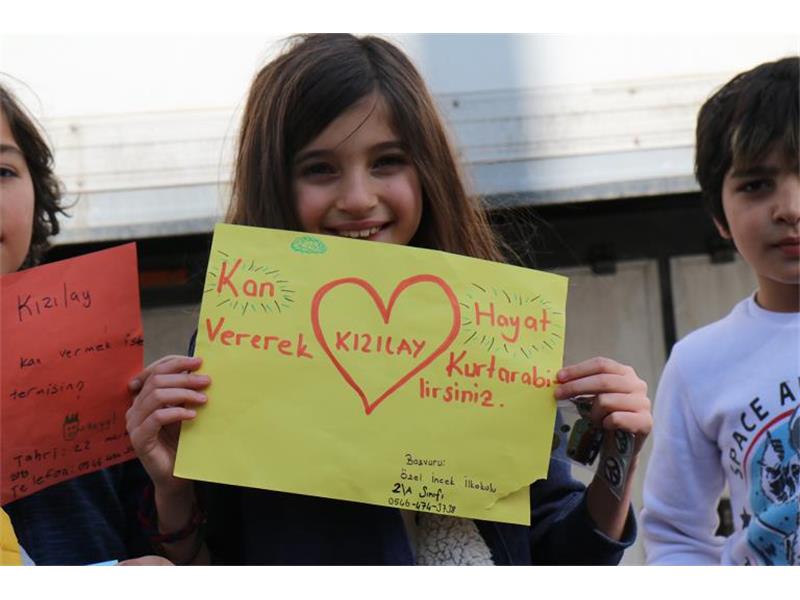 Kızılay
Kan vermek iste
termisin?
Tahri: 22
Telefon: 0546
Kan
Vererek
KIZILAY
Hayat
Kurtarabi-
lirsiniz.
Başvuru:
Özel İncek İlkokulu
2\A Sınıfı
0546-474-3738
SPACE A